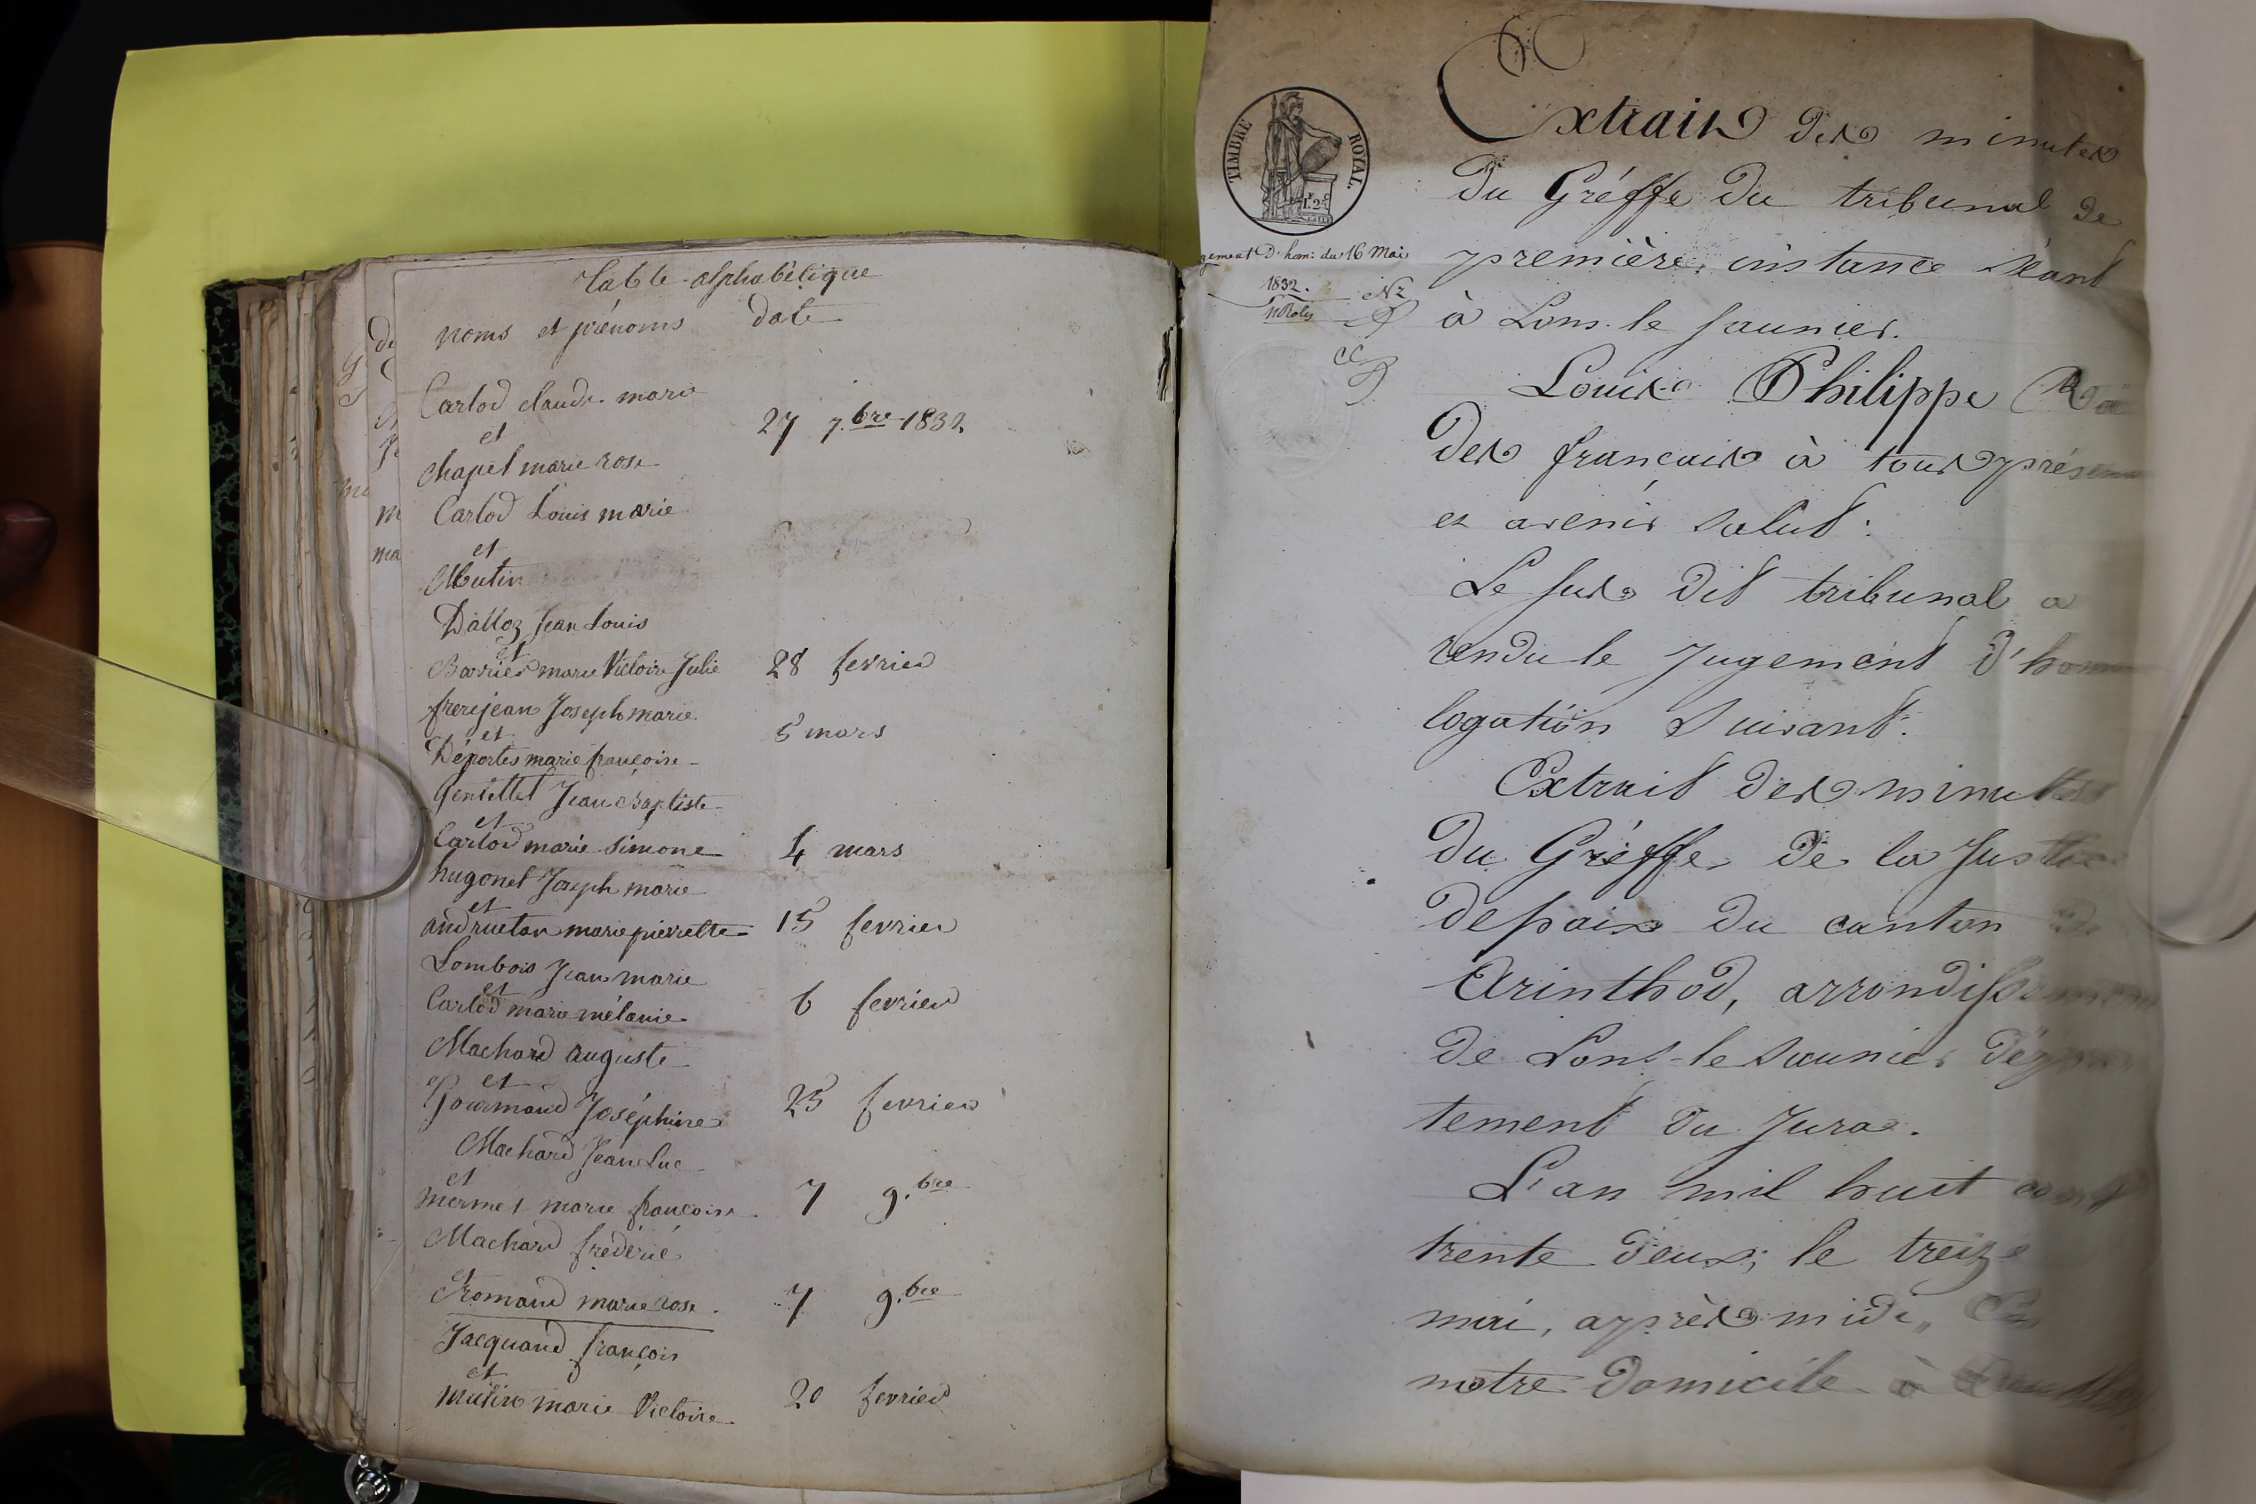 Table alphabétique
noms et prénoms date
Carlod claude marie
et
27 7.bre 1832
chapel marie rose
Carlod Louis marie
et
Mutin
Dalloz Jean Louis
et
Barrier marie Victoire Julie 28 fevrier
frerejean Joseph marie
et
5 mars
Déportes marie françoise
Gentellet Jean Baptiste
et
Carlod marie simone 4 mars
hugonet Joseph marie
et
andruetan marie pierrette 15 fevrier
Lombois Jean marie
et
Carlod marie mélanie 6 fevrier
Machard auguste
et
Gourmand Joséphine 25 fevrier
Machard Jean Luc
et
mermet marie françoise 7 9.bre
Machard frédéric
et
Romand marie rose 7 9.bre
Jacquand françois
et
mutin marie Victoire 20 fevrier
TIMBRE ROYAL.
gement d'hom: du 16 Mai
1832.
11 Roles
Extrait des minutes
du Gréffe du tribunal de
première instance séant
à Lons-le saunier.
Louis Philippe Roi
des français à tous présens
et avenir salut:
Le sus dit tribunal a
rendu le jugement d'homo
logation suivant:
Extrait des minutes
du Gréffe de la Justice
de paix du canton de
Arinthod, arrondissement
de Lons-le Saunier dépar
tement du Jura.
L'an mil huit cent
trente deux, le treize
mai, après midi, En
notre domicile à